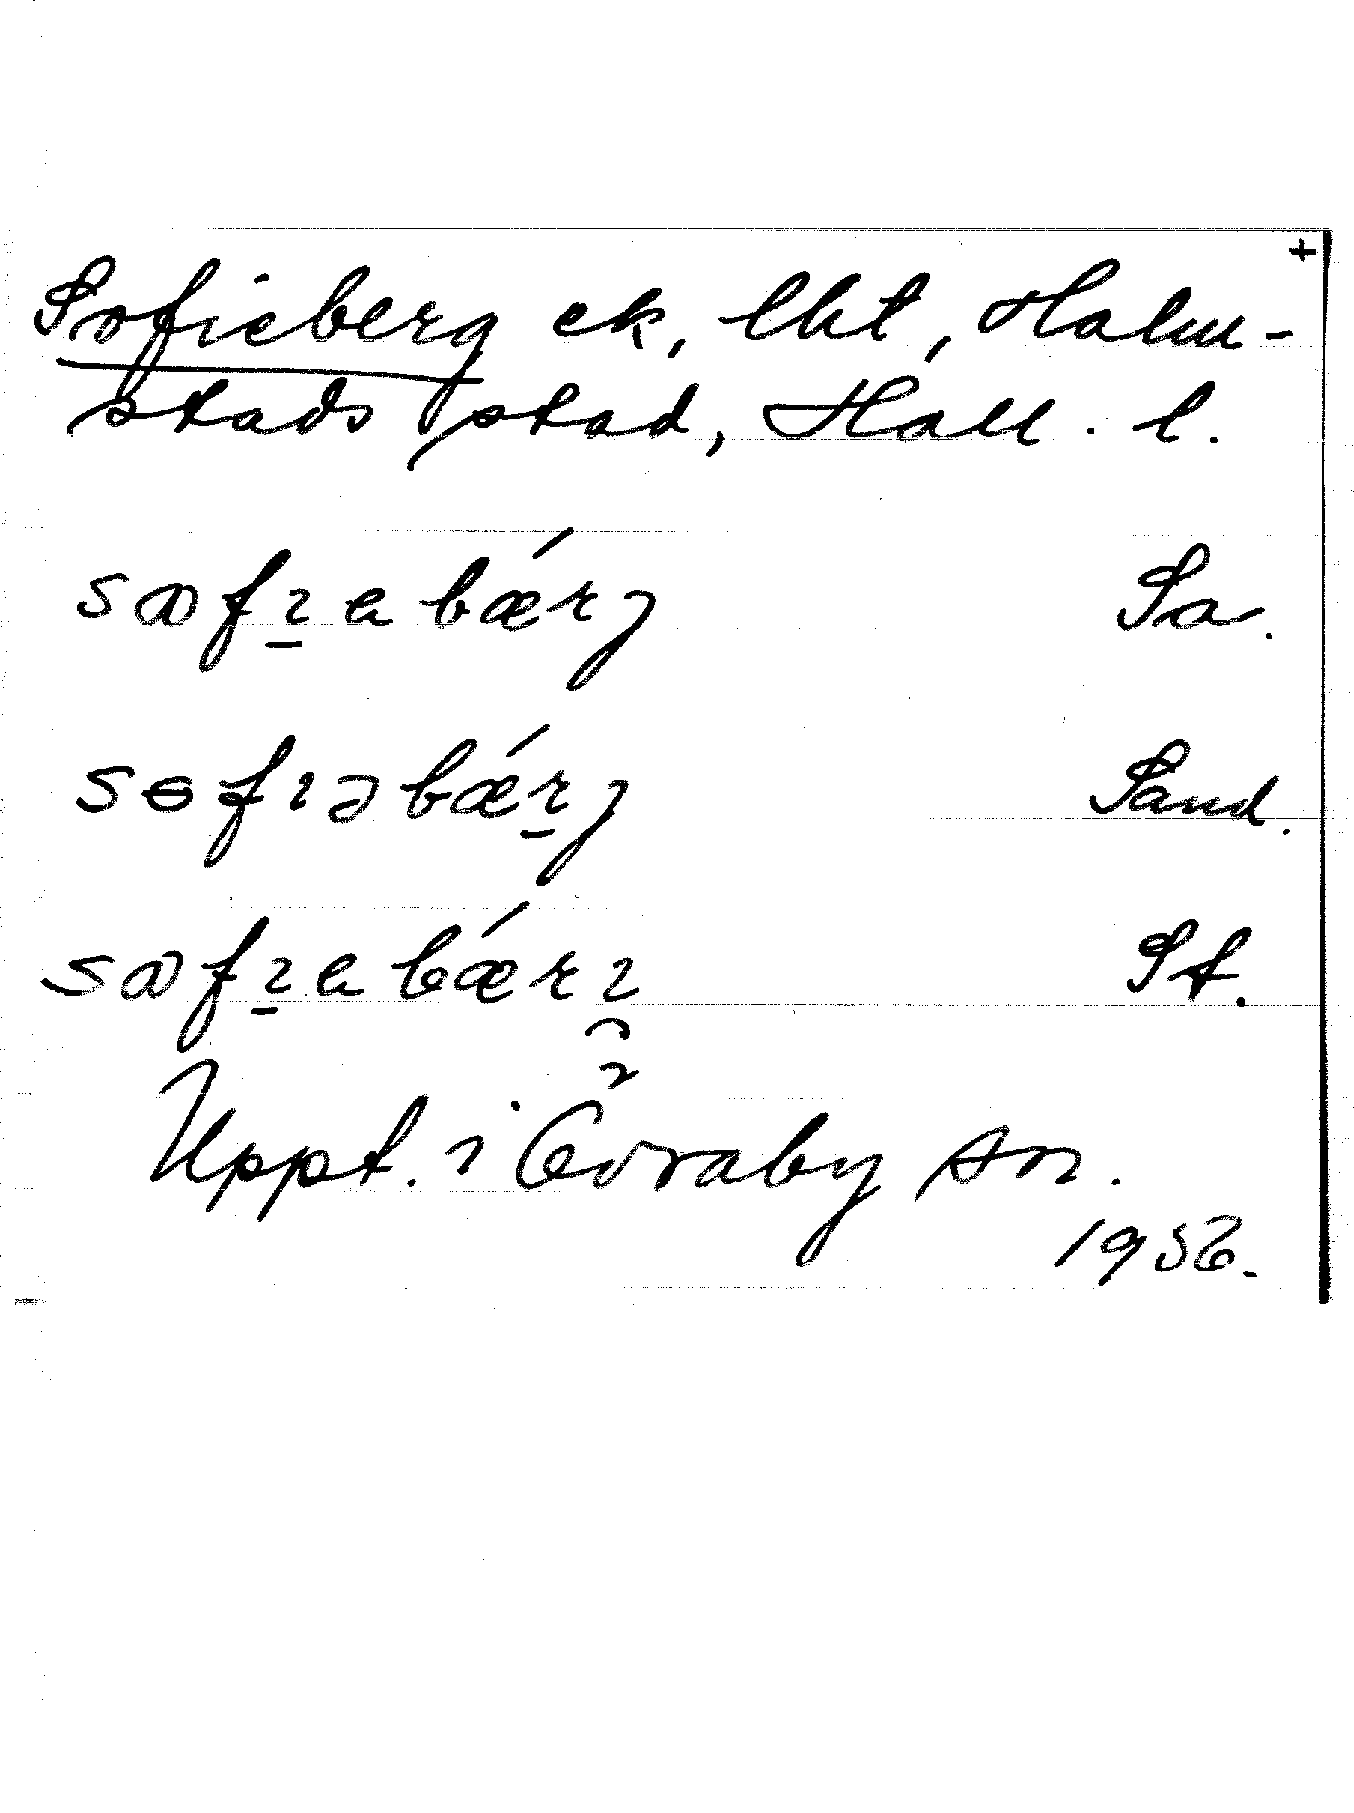 +
Sofieberg ek, lht, Halm-
stads stad, Hall. l.
sofıebǽrȷ Sa.
sɵfıəbǽrȷ Sand.
sofıebǽrı St.
Uppt. i Övraby sn.
1956.